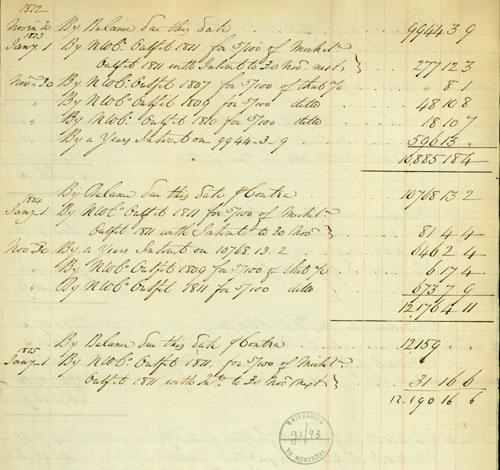 1812
Novr. 30 By Balance due this date 9944 3 9
1813
Jany. 1 By NWCo. Outfit 1811 for 5/100 of Michln.
Outfit 1811 with Interest to 30 Novr. next } 277 12 3
Novr. 30 By NWCo. Outfit 1807 for 5/100 of that % " 8 1
" By NWCo. Outfit 1809 for 5/100 ditto 48 10 8
" By NWCo. Outfit 1810 for 5/100 ditto 18 10 7
By a Years Interest on 9944.3.9 596 13 "
10,885 18 4
By Balance due this date & Contra 10768 13 2
1814
Jany. 1 By NWCo. Outfit 1811 for 5/100 of Michln.
Outfit 1811 with Interest to 30 Novr. } 81 4 4
Novr. 30 By a Years Interest on 10768.13.2 646 2 4
By NWCo. Outfit 1809 for 5/100 of that % 6 17 4
" By NWCo. Outfit 1811 for 5/100 ditto 673 7 9
12,176 4 11
By Balance due this date & Contra 12159
1815
Jany. 1 By NWCo. Outfit 1811 for 5/100 of Michln.
Outfit 1811 with Int. to 30 Novr. next } 31 16 6
12.190 16 6
UNIVERSITÉ
91/93
DE MONTRÉAL